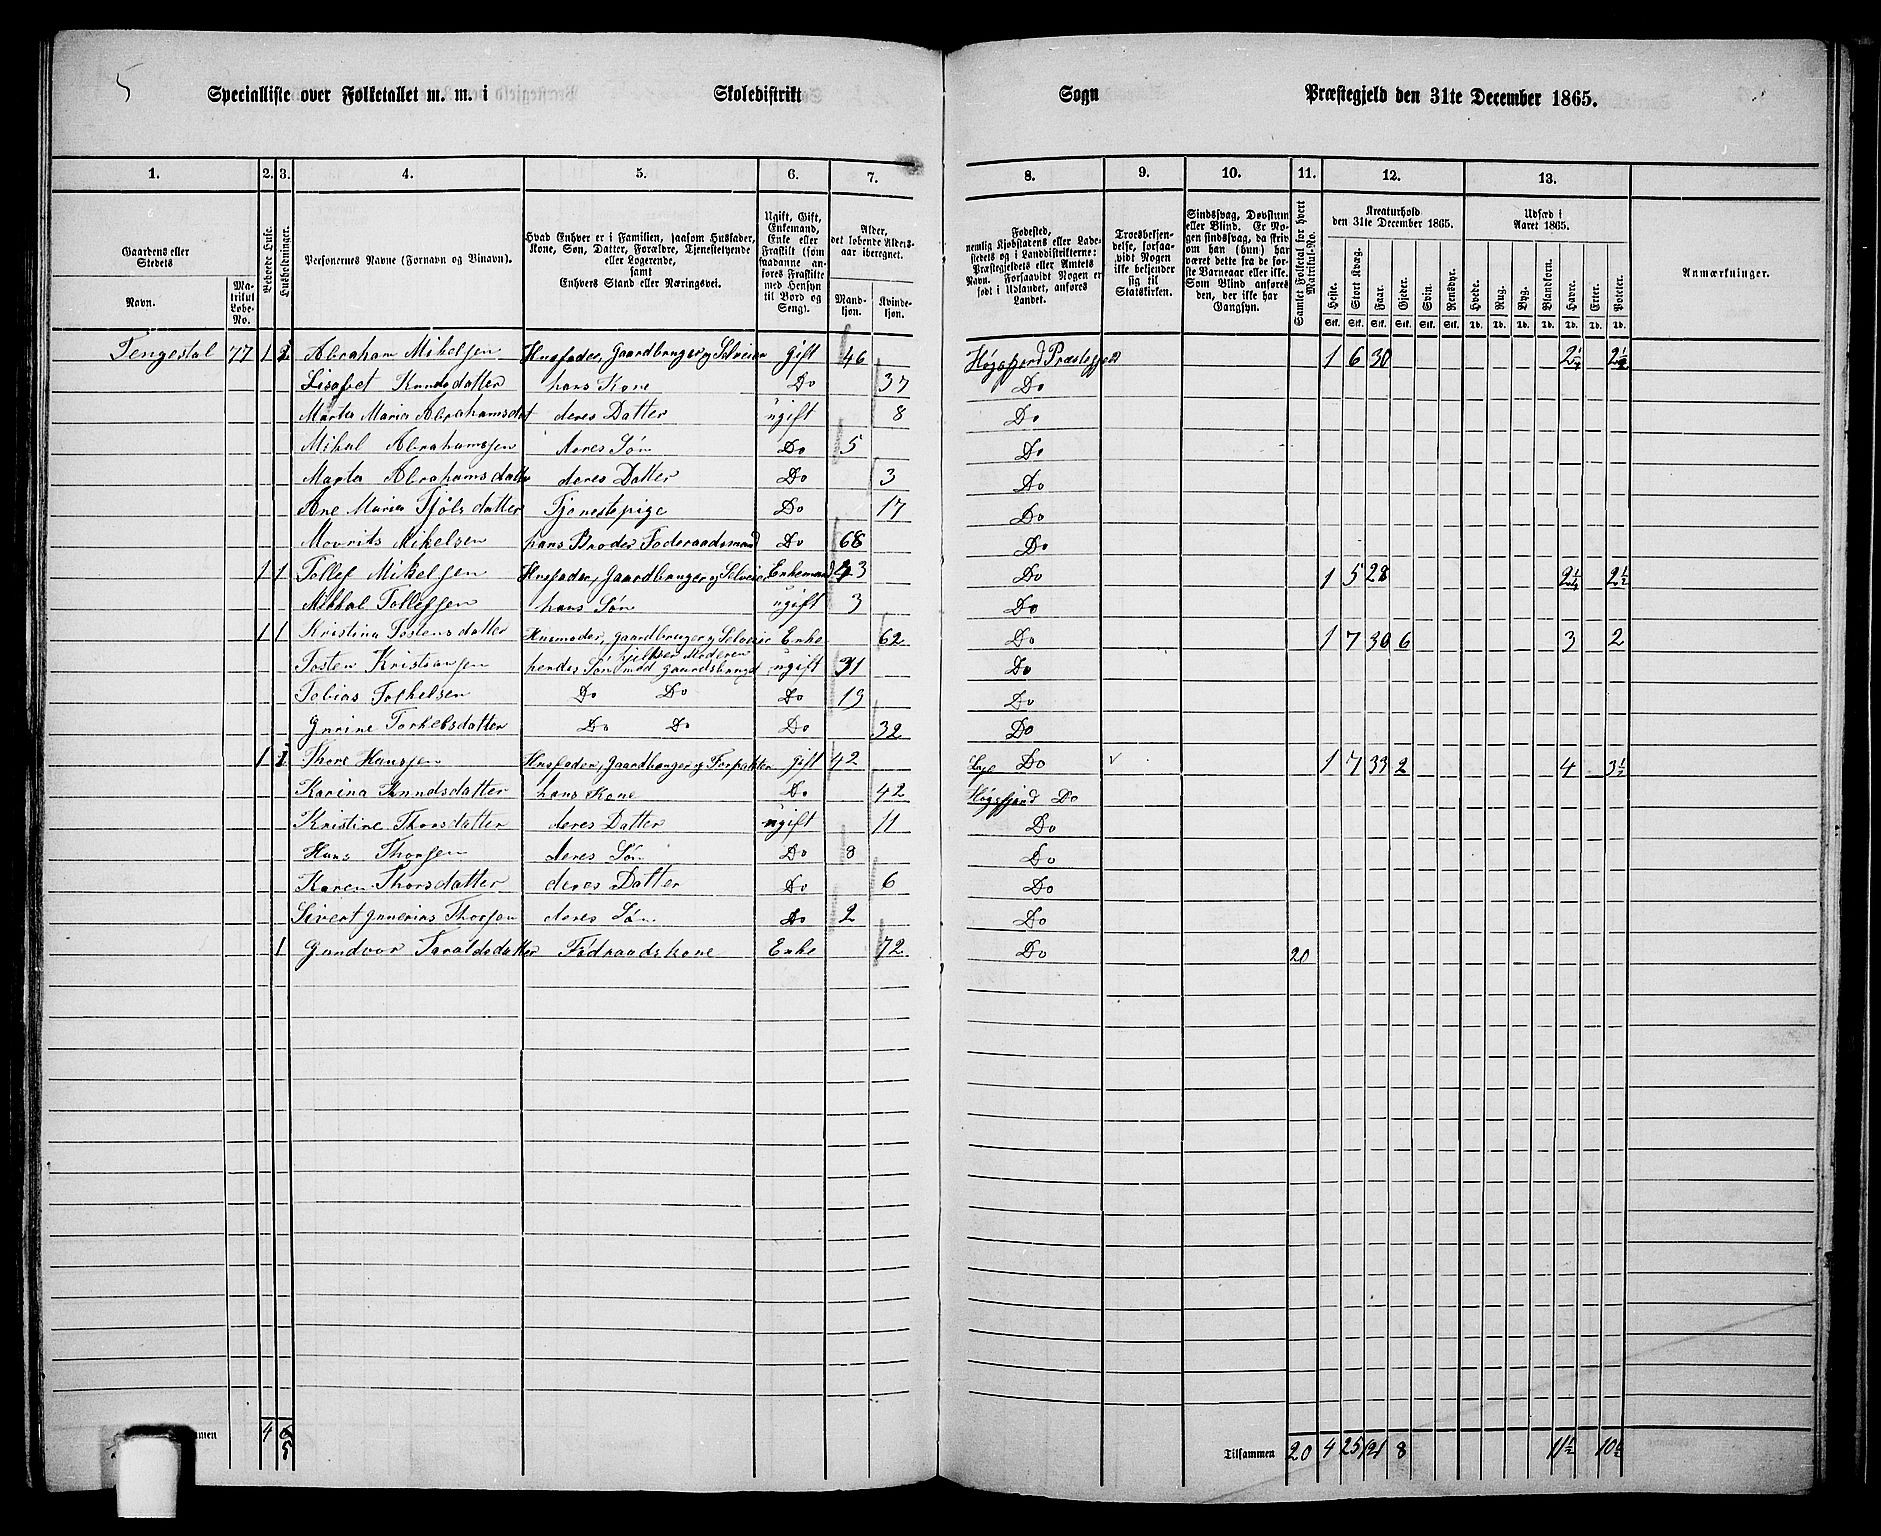 5
Specialliste over Folketallet m. m. i Skoledistrikt Sogn Præstegjeld den 31te December 1865.
1. 2. 3. 4. 5. 6. 7. 8. 9. 10. 11. 12. 13.
Gaardens eller Stedets
Navn.
Matrikul Løbe-No.
Beboede Huse.
Husholdninger.
Personernes Navne (Fornavn og Binavn).
Hvad Enhver er i Familien, saasom Husfader, Kone, Søn, Datter, Forældre, Tjenestetyende eller Logerende, samt Enhvers Stand eller Næringsvei.
Ugift, Gift, Enkemand, Enke eller Fraskilt (som saadanne anføres Fraskilte med Hensyn til Bord og Seng).
Alder, det løbende Alders-aar iberegnet.
Mand-kjøn. Kvinde-kjøn.
Fødested, nemlig Kjøbstadens eller Ladestedets og i Landdistrikterne: Præstegjeldets eller Amtets Navn. Forsaavidt Nogen er født i Udlandet, anføres Landet.
Troesbekjendelse, forsaavidt Nogen ikke bekjender sig til Statskirken.
Sindssvag, Døvstum eller Blind. Er Nogen sindssvag, da skriv om han (hun) har været dette fra de første Barneaar eller ikke. Som Blind anføres den, der ikke har Gangsyn.
Samlet Folketal for hvert Matrikule-No.
Kreaturhold den 31te December 1865.
Heste. Stort Kvæg. Faar. Gjeder. Svin. Rensdyr.
Stk. Stk. Stk. Stk. Stk. Stk.
Udsæd i Aaret 1865.
Hvede. Rug. Byg. Blandkorn. Havre. Erter. Poteter.
Td. Td. Td. Td. Td. Td. Td.
Anmærkninger.
Tengesdal 77 1 2 Abraham Mikelsen Husfader, Gaardbruger og Selveier gift 46 Høgsfjord Præstegjeld 1 6 30 2¼ 2½
Lisabet Knudsdatter hans Kone Do 37 Do
Marta Maria Abrahamsdat deres Datter ugift 8 Do
Mikal Abrahamsen deres Søn Do 5 Do
Marta Abrahamsdatter deres Datter Do 3 Do
Ane Maria Tjølsdatter Tjenestepige Do 17 Do
Mourits Mikelsen hans Broder Føderaadsmand Do 68 Do
1 1 Tollef Mikelsen Husfader, Gaardbruger og Selveier Enkemand 43 Do 1 5 28 2¼ 2½
Mikkal Tollefsen hans Søn ugift 3 Do
1 1 Kristina Tostensdatter Husmoder, gaardbruger og Selveier Enke 62 Do 1 7 30 6 3 2
Tosten Kristiansen hendes Søn hjelper Moderen med Gaardsbruget ugift 31 Do
Tobias Torkelsen Do Do Do 19 Do
Gurine Torkelsdatter Do Do Do 32 Do
1 1 Thore Hansen Husfader, Gaardbruger og Forpakter gift 42 Do 1 7 33 2 4 3½
Karina Knudsdatter hans Kone Do 42 Høgsfjord Do
Kristine Thorsdatter deres Datter ugift 11 Do
Hans Thorsen deres Søn Do 8 Do
Karen Thorsdatter deres Datter Do 6 Do
Sivert Gunerius Thorsen deres Søn Do 2 Do
1 Gundvor Taraldsdatter Fødraadskone Enke 72 Do 20
4 6 5
Tilsammen 20 4 25 121 8 11½ 10½